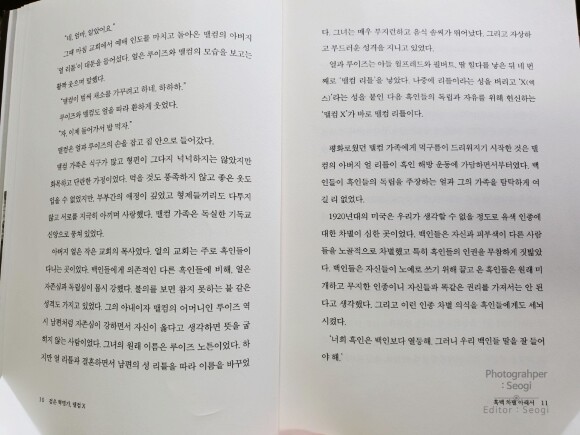 "네, 엄마. 알았어요."
그때 마침 교회에서 예배 인도를 마치고 돌아온 맬컴의 아버지
얼 리틀이 대문을 들어섰다. 얼은 루이즈와 맬컴의 모습을 보고는
활짝 웃으며 말했다.
"맬컴이 벌써 채소를 가꾸려고 하네. 하하하."
루이즈와 맬컴도 얼을 따라 환하게 웃었다.
"자, 이제 들어가서 밥 먹자."
맬컴은 얼과 루이즈의 손을 잡고 집 안으로 들어갔다.
맬컴 가족은 식구가 많고 형편이 그다지 넉넉하지는 않았지만
화목하고 단란한 가정이었다. 먹을 것도 풍족하지 않고 좋은 옷도
입을 수 없었지만, 부부간의 애정이 깊었고 형제들끼리도 다투지
않고 서로를 지극히 아끼며 사랑했다. 맬컴 가족은 독실한 기독교
신앙으로 뭉쳐 있었다.
아버지 얼은 작은 교회의 목사였다. 얼의 교회는 주로 흑인들이
다니는 곳이었다. 백인들에게 의존적인 다른 흑인들에 비해, 얼은
자존심과 독립심이 몹시 강했다. 불의를 보면 참지 못하는 불 같은
성격도 가지고 있었다. 그의 아내이자 맬컴의 어머니인 루이즈 역
시 남편처럼 자존심이 강하면서 자신이 옳다고 생각하면 뜻을 굽
히지 않는 사람이었다. 그녀의 원래 이름은 루이즈 노튼이었다. 하
지만 얼 리틀과 결혼하면서 남편의 성 리틀을 따라 이름을 바꾸었
10 검은 혁명가, 맬컴 X
다. 그녀는 매우 부지런하고 음식 솜씨가 뛰어났다. 그리고 자상하
고 부드러운 성격을 지니고 있었다.
얼과 루이즈는 아들 윌프레드와 필버트, 딸 힐다를 낳은 뒤 네 번
째로 '맬컴 리틀'을 낳았다. 나중에 리틀이라는 성을 버리고 'X(엑
스)'라는 성을 붙인 다음 흑인들의 독립과 자유를 위해 헌신하는
'맬컴 X'가 바로 맬컴 리틀이다.
평화로웠던 맬컴 가족에게 먹구름이 드리워지기 시작한 것은 맬
컴의 아버지 얼 리틀이 흑인 해방 운동에 가담하면서부터였다. 백
인들이 흑인들의 독립을 주장하는 얼과 그의 가족을 탐탁하게 여
길 리 없었다.
1920년대의 미국은 우리가 생각할 수 없을 정도로 유색 인종에
대한 차별이 심한 곳이었다. 백인들은 자신과 피부색이 다른 사람
들을 노골적으로 차별했고 특히 흑인들의 인권을 무참하게 짓밟았
다. 백인들은 자신들이 노예로 쓰기 위해 끌고 온 흑인들은 원래 미
개하고 무지한 인종이니 자신들과 똑같은 권리를 가져서는 안 된
다고 생각했다. 그리고 이런 인종 차별 의식을 흑인들에게도 세뇌
시켰다.
'너희 흑인은 백인보다 열등해. 그러니 우리 백인들 말을 잘 들어
야 해.'
흑백 차별 아래서 11
Photograhper
: Seogi
Editor : Seogi